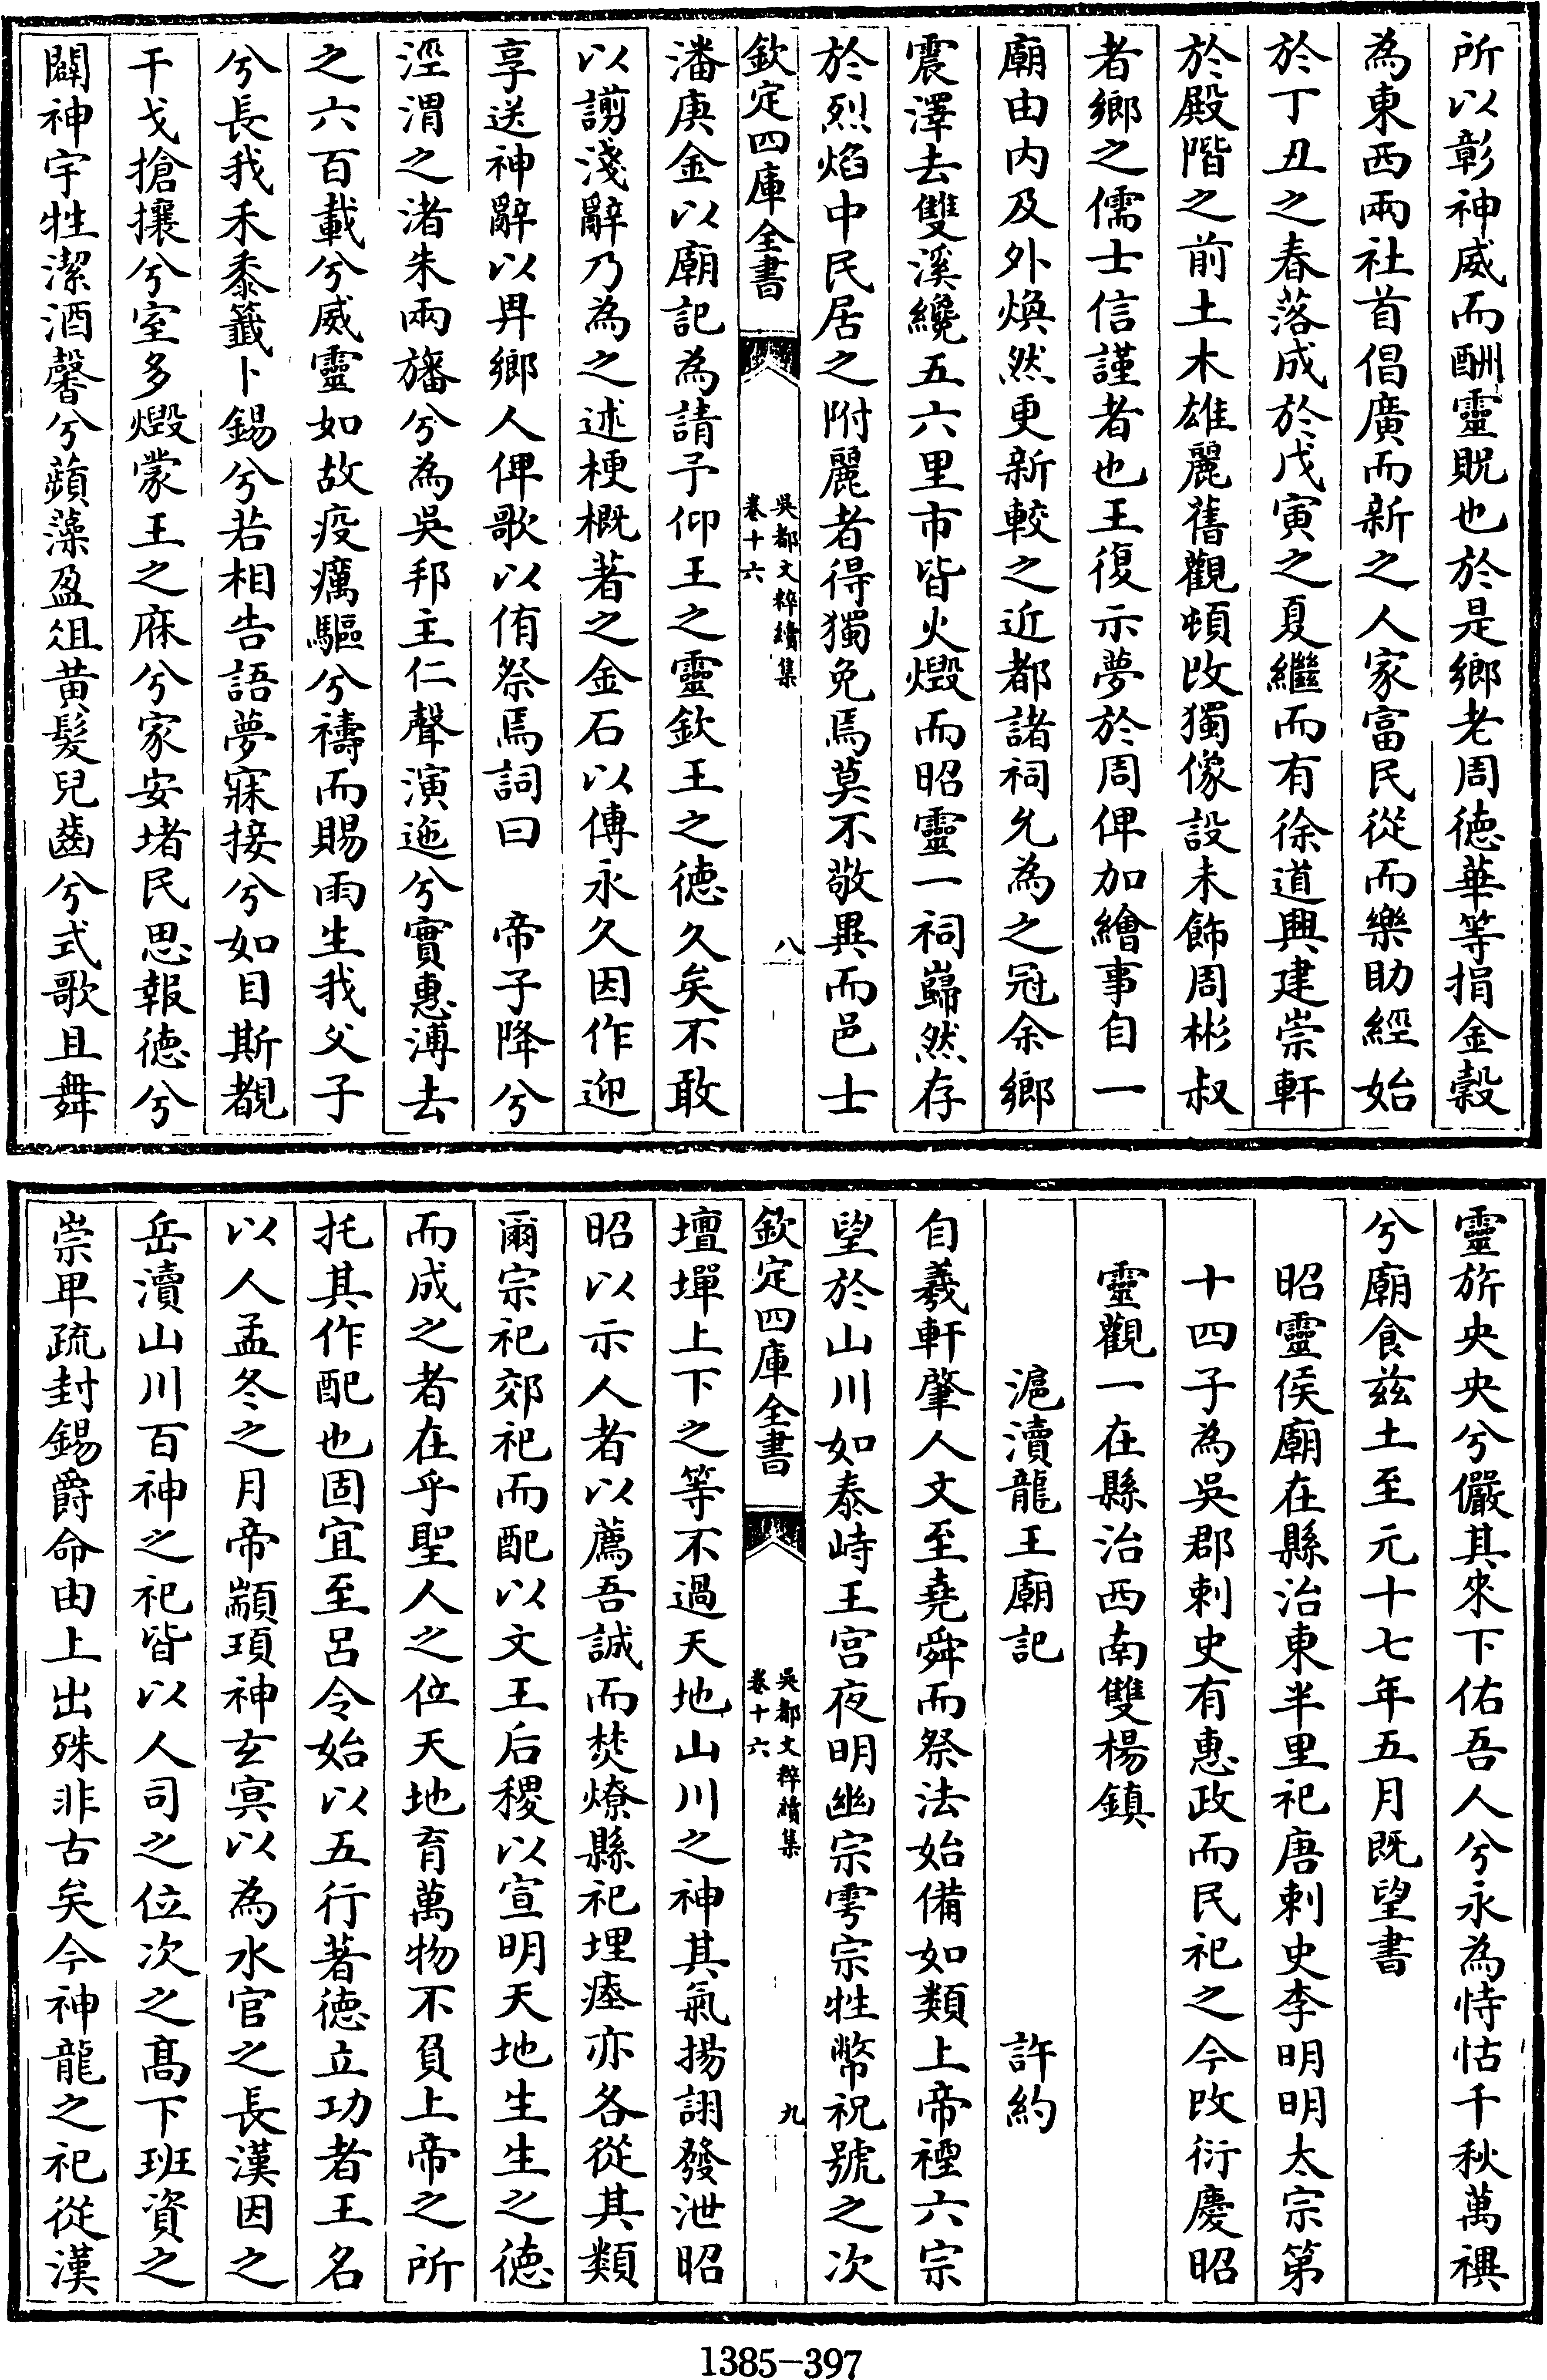 所以彰神威而酬靈貺也於是鄉老周德華等捐金穀
為東西兩社首倡廣而新之人家富民從而樂助經始
於丁丑之春落成於戊寅之夏繼而有徐道興建崇軒
於殿階之前土木雄麗舊觀頓改獨像設未飾周彬叔
者鄉之儒士信謹者也王復示夢於周俾加繪事自一
廟由內及外煥然更新較之近都諸祠允為之冠余鄉
震澤去雙溪纔五六里市皆火燬而昭靈一祠巋然存
於烈焰中民居之附麗者得獨免焉莫不敬異而邑士
欽定四庫全書
吳都文粹續集
卷十六
八
潘庚金以廟記為請予仰王之靈欽王之德久矣不敢
以謭淺辭乃為之述梗概著之金石以傳永久因作迎
享送神辭以畀鄉人俾歌以侑祭焉詞曰　帝子降兮
涇渭之渚朱兩旛兮為吳邦主仁聲演迤兮實惠溥去
之六百載兮威靈如故疫癘驅兮禱而賜雨生我父子
兮長我禾黍籤卜錫兮若相告語夢寐接兮如目斯覩
干戈搶攘兮室多燬蒙王之庥兮家安堵民思報德兮
闢神宇牲潔酒馨兮蘋藻盈俎黃髮兒齒兮式歌且舞
靈旂央央兮儼其來下佑吾人兮永為恃怙千秋萬禩
兮廟食茲土至元十七年五月既望書
昭靈侯廟在縣治東半里祀唐刺史李明明太宗第
十四子為吳郡刺史有惠政而民祀之今改衍慶昭
靈觀一在縣治西南雙楊鎮
滬瀆龍王廟記　許約
自羲軒肇人文至堯舜而祭法始備如類上帝禋六宗
望於山川如泰峙王宮夜明幽宗雩宗牲幣祝號之次
欽定四庫全書
吳都文粹續集
卷十六
九
壇墠上下之等不過天地山川之神其氣揚詡發泄昭
昭以示人者以薦吾誠而焚燎縣祀埋瘞亦各從其類
爾宗祀郊祀而配以文王后稷以宣明天地生生之德
而成之者在乎聖人之位天地育萬物不負上帝之所
托其作配也固宜至呂令始以五行著德立功者王名
以人孟冬之月帝顓頊神玄冥以為水官之長漢因之
岳瀆山川百神之祀皆以人司之位次之高下班資之
崇卑疏封錫爵命由上出殊非古矣今神龍之祀從漢
1385-397